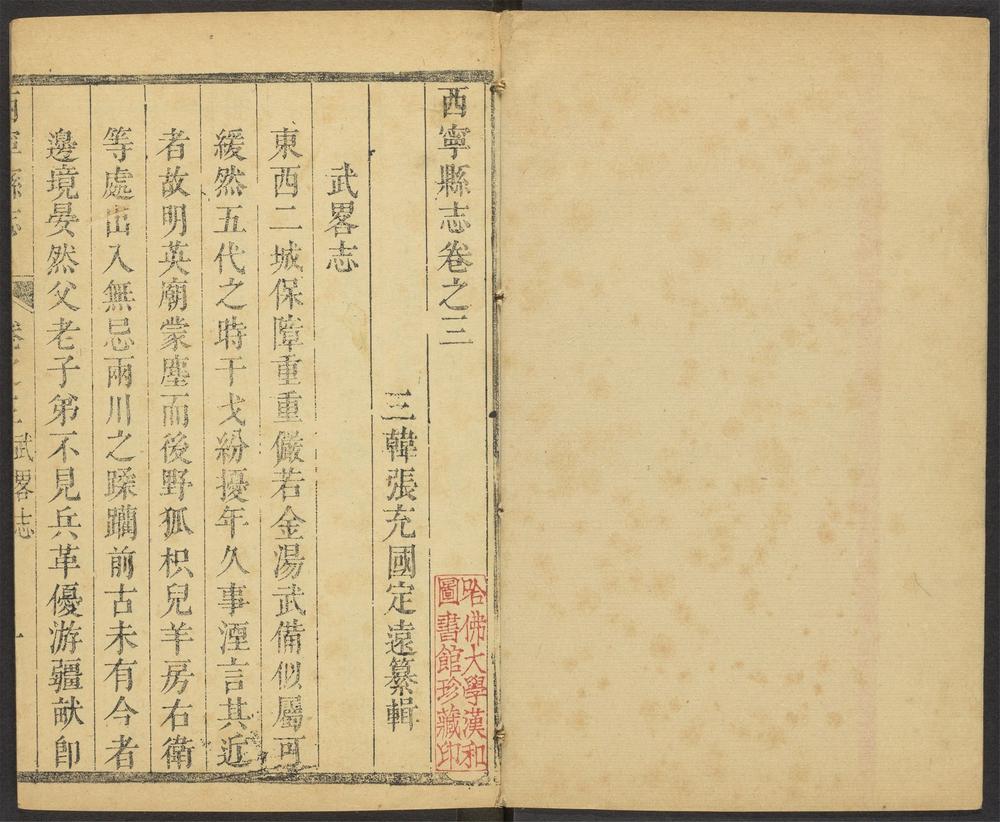 西寧縣志卷之三
哈佛大學漢和
圖書館珍藏印
三韓張充國定遠纂輯
武畧志
東西二城保障重重儼若金湯武備似屬可
緩然五代之時干戈紛擾年久事湮言其近
者故明英廟蒙塵而後野狐枳兒羊房右衛
等處出入無忌兩川之蹂躪前古未有今者
邊境晏然父老子弟不見兵革優游疆畎卽
西寧縣志 卷之三武畧志 一